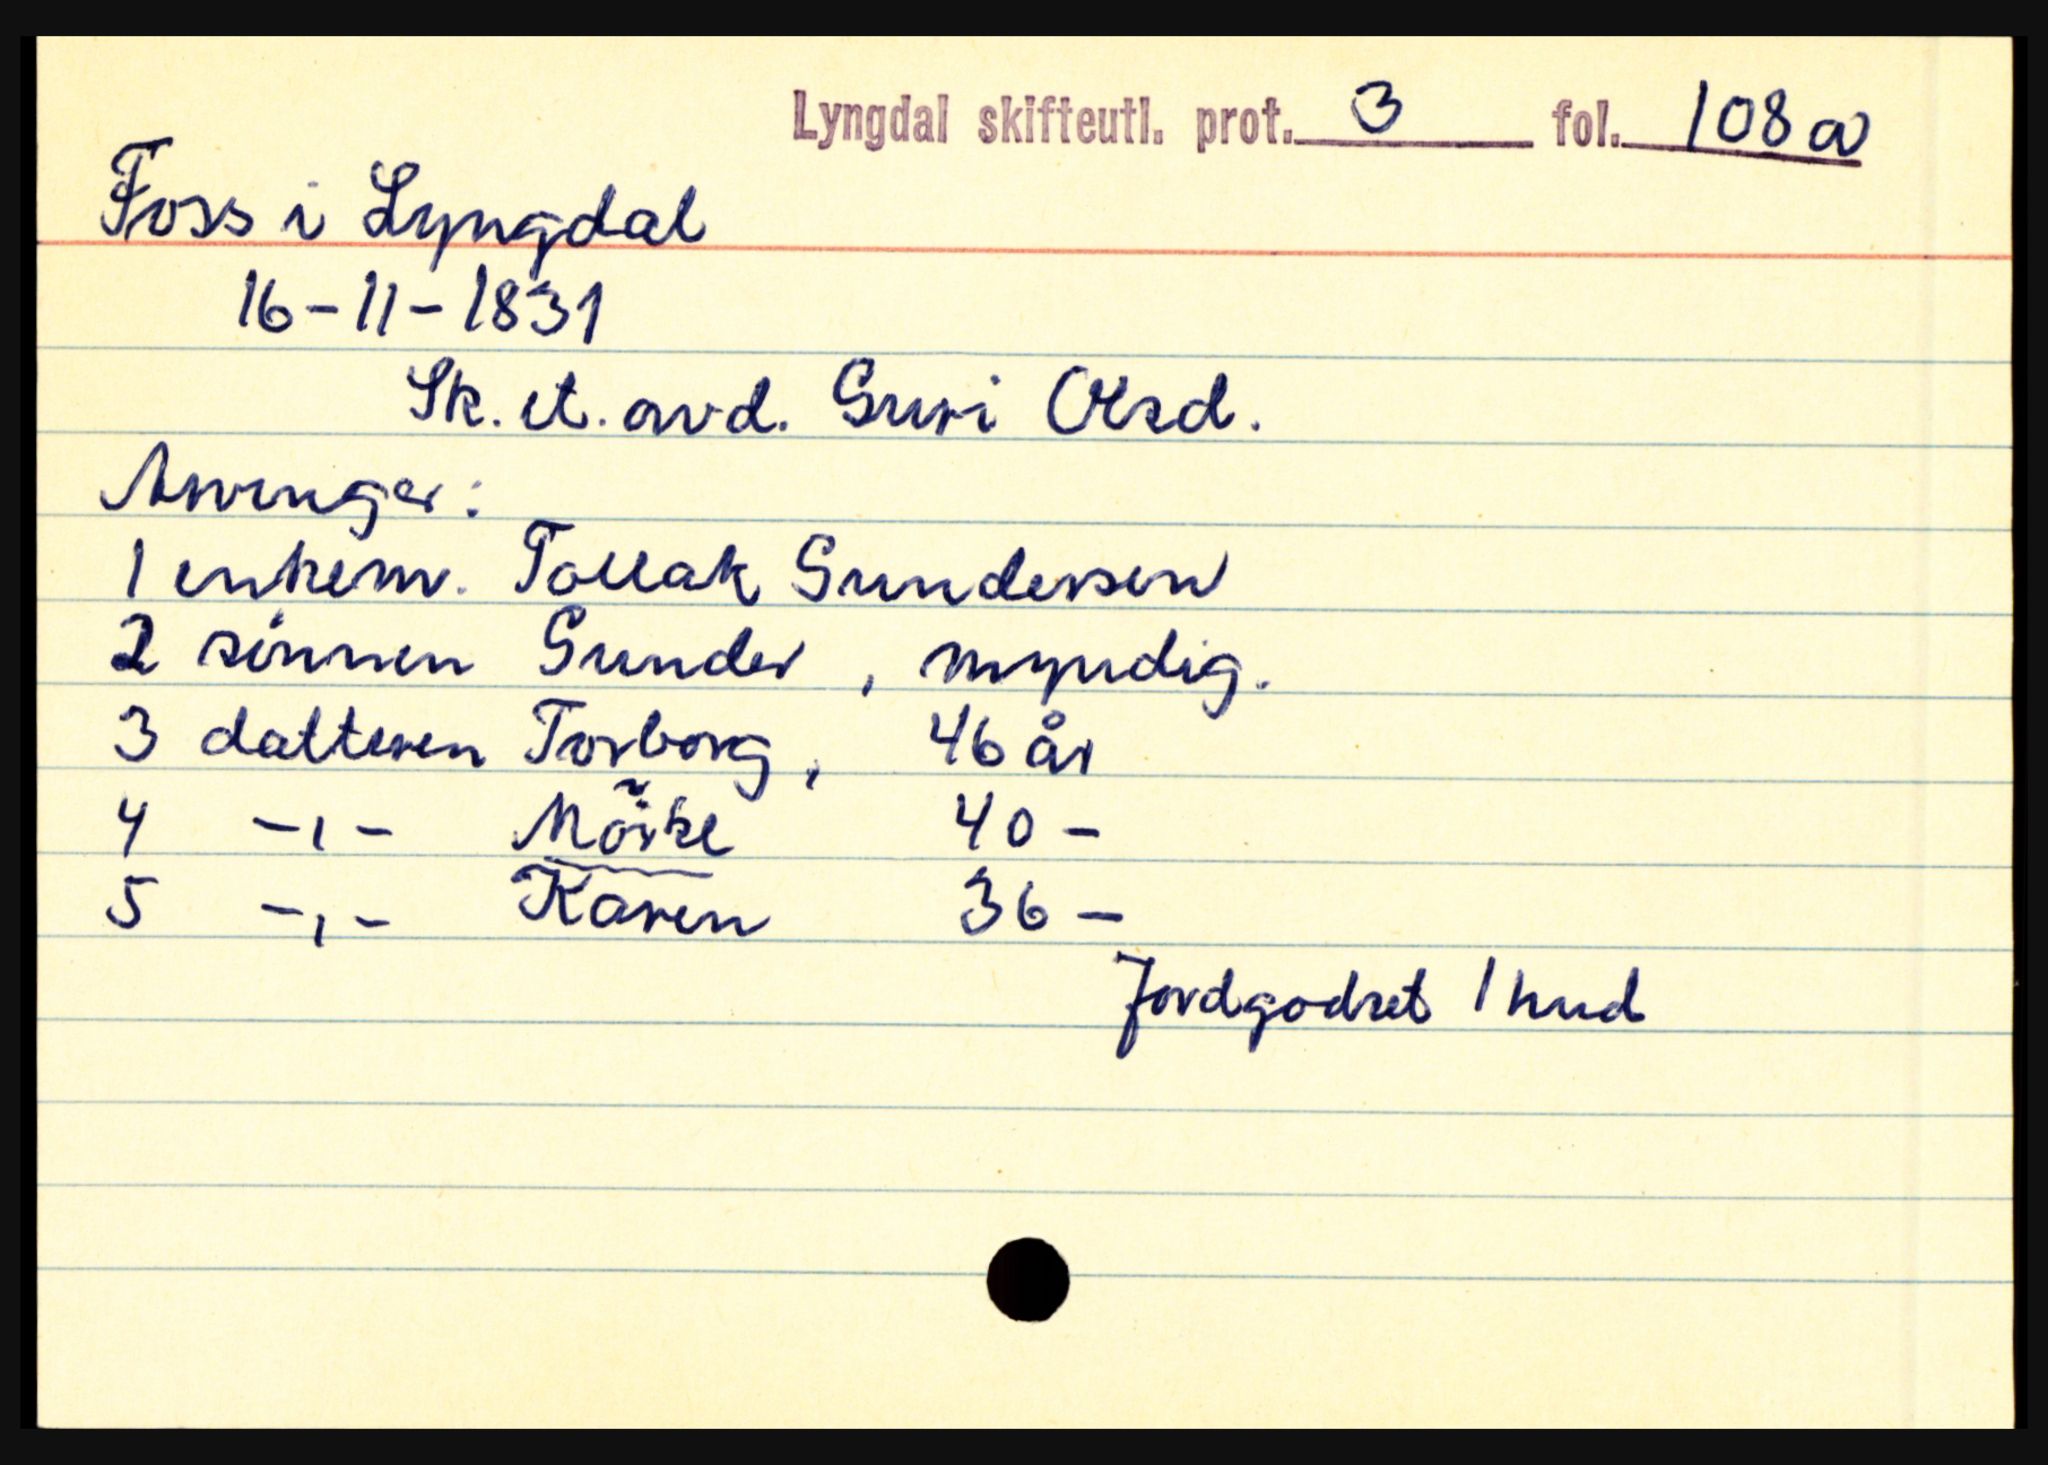 Lyngdal skifteutl. prot. 3 fol. 108 a
Foss i Lyngdal
16-11-1831
Sk. et. avd. Guri Olsd.
Arvinger:
1 enkem. Tollak Gundersen
2 sönnen Gunder, myndig.
3 datteren Torborg, 46 år
4 -,- Mörke 40 -
5 -,- Karen 36 -
Jordgodset 1 hud